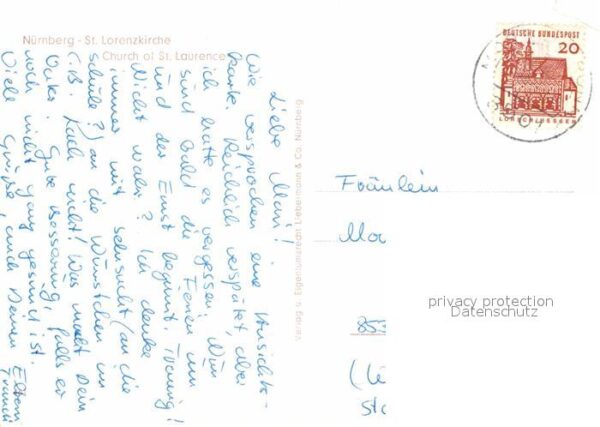 Nürnberg - St. Lorenzkirche
Church of St. Laurence
Liebe Mari!
Wie versprochen eine Ansichts-
karte. Reichlich verspätet, aber
ich hatte es vergessen. Nun
sind bald die Ferien um
und der Ernst beginnt. Traurig!
Nicht wahr? Ich denke
immer mit Sehnsucht (an die
Schule?) an die
Lach nicht! Was macht Dein
Gute Besserung, falls er
noch nicht ganz gesund ist.
Viele Grüße, auch Deinen Eltern
Verlag u. Eigentumsrecht Liebermann & Co. Nürnberg
DEUTSCHE BUNDESPOST
20
LORSCH/HESSEN
Fräulein
privacy protection
Datenschutz